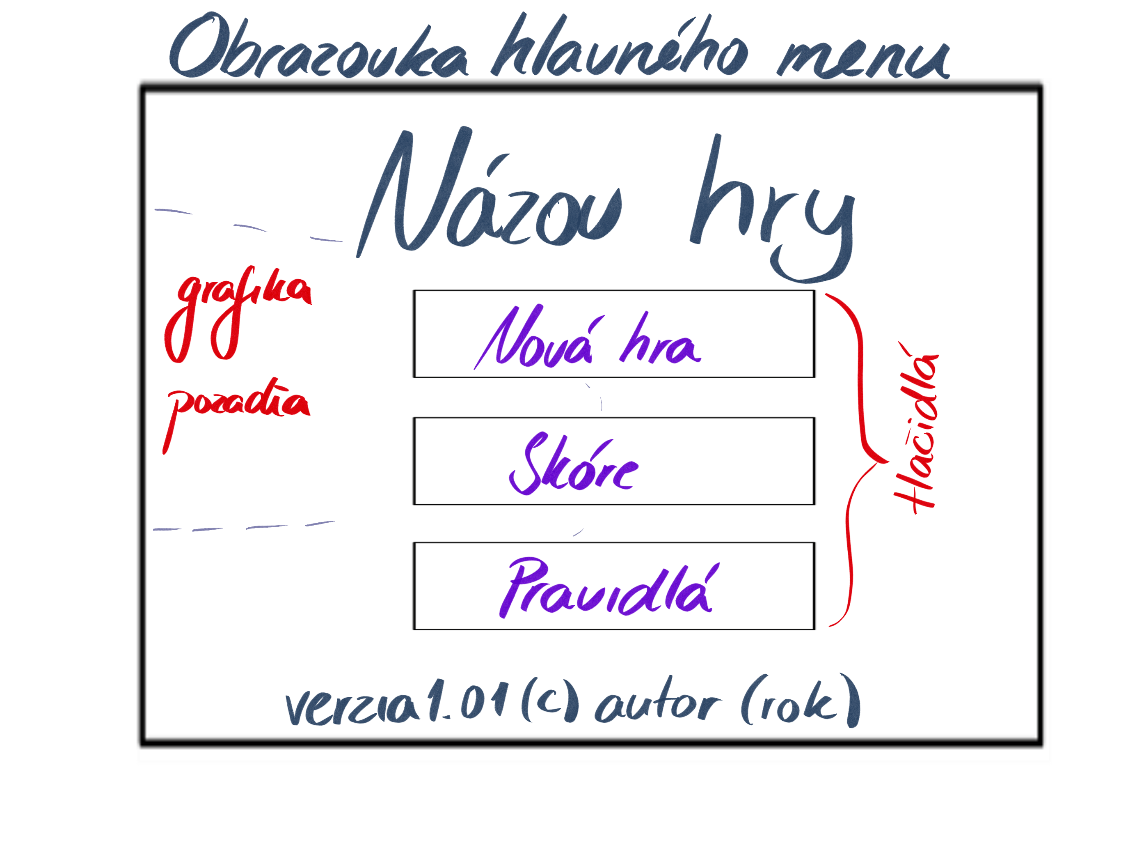 Obrazovka hlavného menu
Názov hry
grafika
pozadia
Nová hra
Skóre
Pravidlá
tlačidlá
verzia 1.01 (c) autor (rok)